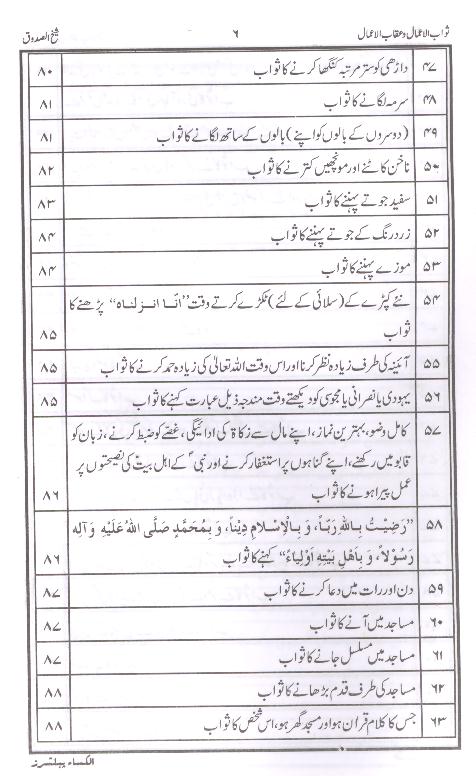 ثواب الاعمال و عقاب الاعمال ۶ شیخ الصدوق
۴۷ داڑھی کو ستر مرتبہ کنگھا کرنے کا ثواب ۸۰
۴۸ سرمہ لگانے کا ثواب ۸۱
۴۹ (دوسروں کے بالوں کو اپنے) بالوں کے ساتھ لگانے کا ثواب ۸۱
۵۰ ناخن کاٹنے اور مونچھیں کترنے کا ثواب ۸۲
۵۱ سفید جوتے پہننے کا ثواب ۸۳
۵۲ زرد رنگ کے جوتے پہننے کا ثواب ۸۴
۵۳ موزے پہننے کا ثواب ۸۴
۵۴ نئے کپڑے کے (سلائی کے لئے) ٹکڑے کرتے وقت ”انا انزلناہ“ پڑھنے کا
ثواب ۸۵
۵۵ آئینہ کی طرف زیادہ نظر کرنا اور اس وقت اللہ تعالیٰ کی زیادہ حمد کرنے کا ثواب ۸۵
۵۶ یہودی یا نصرانی یا مجوسی کو دیکھتے وقت مندجہ ذیل عبارت کہنے کا ثواب ۸۵
۵۷ کامل وضو، بہترین نماز، اپنے مال سے زکاۃ کی ادائیگی، غصّے کو ضبط کرنے، زبان کو
قابو میں رکھنے، اپنے گناہوں پر استغفار کرنے اور نبیؐ کے اہل بیتؑ کی نصیحتوں پر
عمل پیرا ہونے کا ثواب ۸۶
۵۸ ”رَضِيْتُ بِاللهِ رَبًّا، وَ بِالْاِسْلَامِ دِيْنًا، وَ بِمُحَمَّدٍ صَلَّى اللهُ عَلَيْهِ وَ آلِهِ
رَسُوْلًا، وَ بِاَهْلِ بَيْتِهِ اَوْلِيَاءً“ کہنے کا ثواب ۸۶
۵۹ دن اور رات میں دعا کرنے کا ثواب ۸۷
۶۰ مساجد میں آنے کا ثواب ۸۷
۶۱ مساجد میں مسلسل جانے کا ثواب ۸۷
۶۲ مساجد کی طرف قدم بڑھانے کا ثواب ۸۸
۶۳ جس کا کلام قرآن ہو اور مسجد گھر ہو، اس شخص کا ثواب ۸۸
الکساء پبلشرز